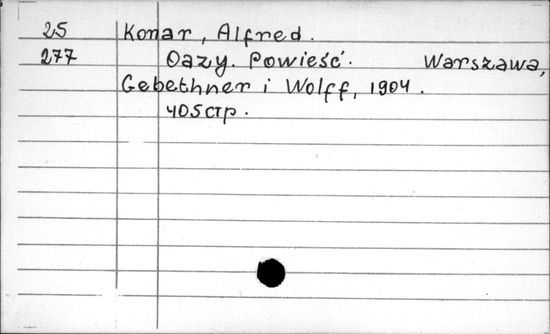 25 Konar, Alfred.
277 Oazy. Powieść. Warszawa,
Gebethner i Wolff, 1904.
405 стр.